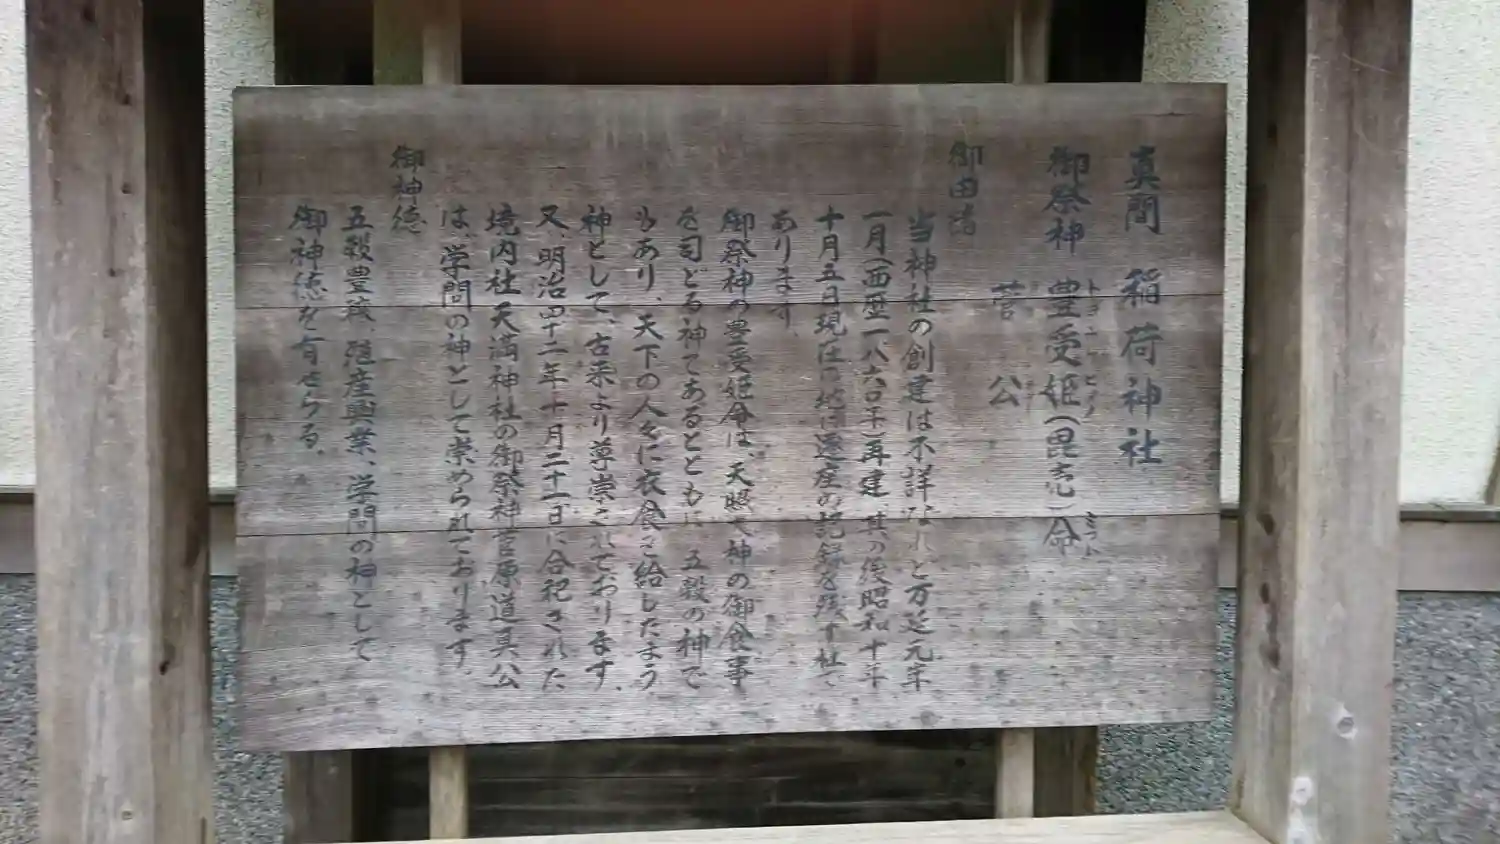 真間 稲荷神社
御祭神 豊受姫(毘売)命
トヨ ヒメ ミコト
菅公
御由諸
当神社の創建は不詳なれと万延元年
一月(西歴一八六〇年)再建、其の後昭和十年
十月五日現在の地に遷座の記録を残す社で
あります。
御祭神の豊受姫命は、天照大神の御食事
を司どる神であるとともに、五穀の神で
もあり、天下の人々に衣食を給したまう
神として、古来より尊崇されております。
又、明治四十二年十月二十一日に合祀された
境内社天満神社の御祭神菅原道真公
は、学問の神として崇められております。
御神徳
五穀豊穣、殖産興業、学問の神として
御神徳を有せらる。